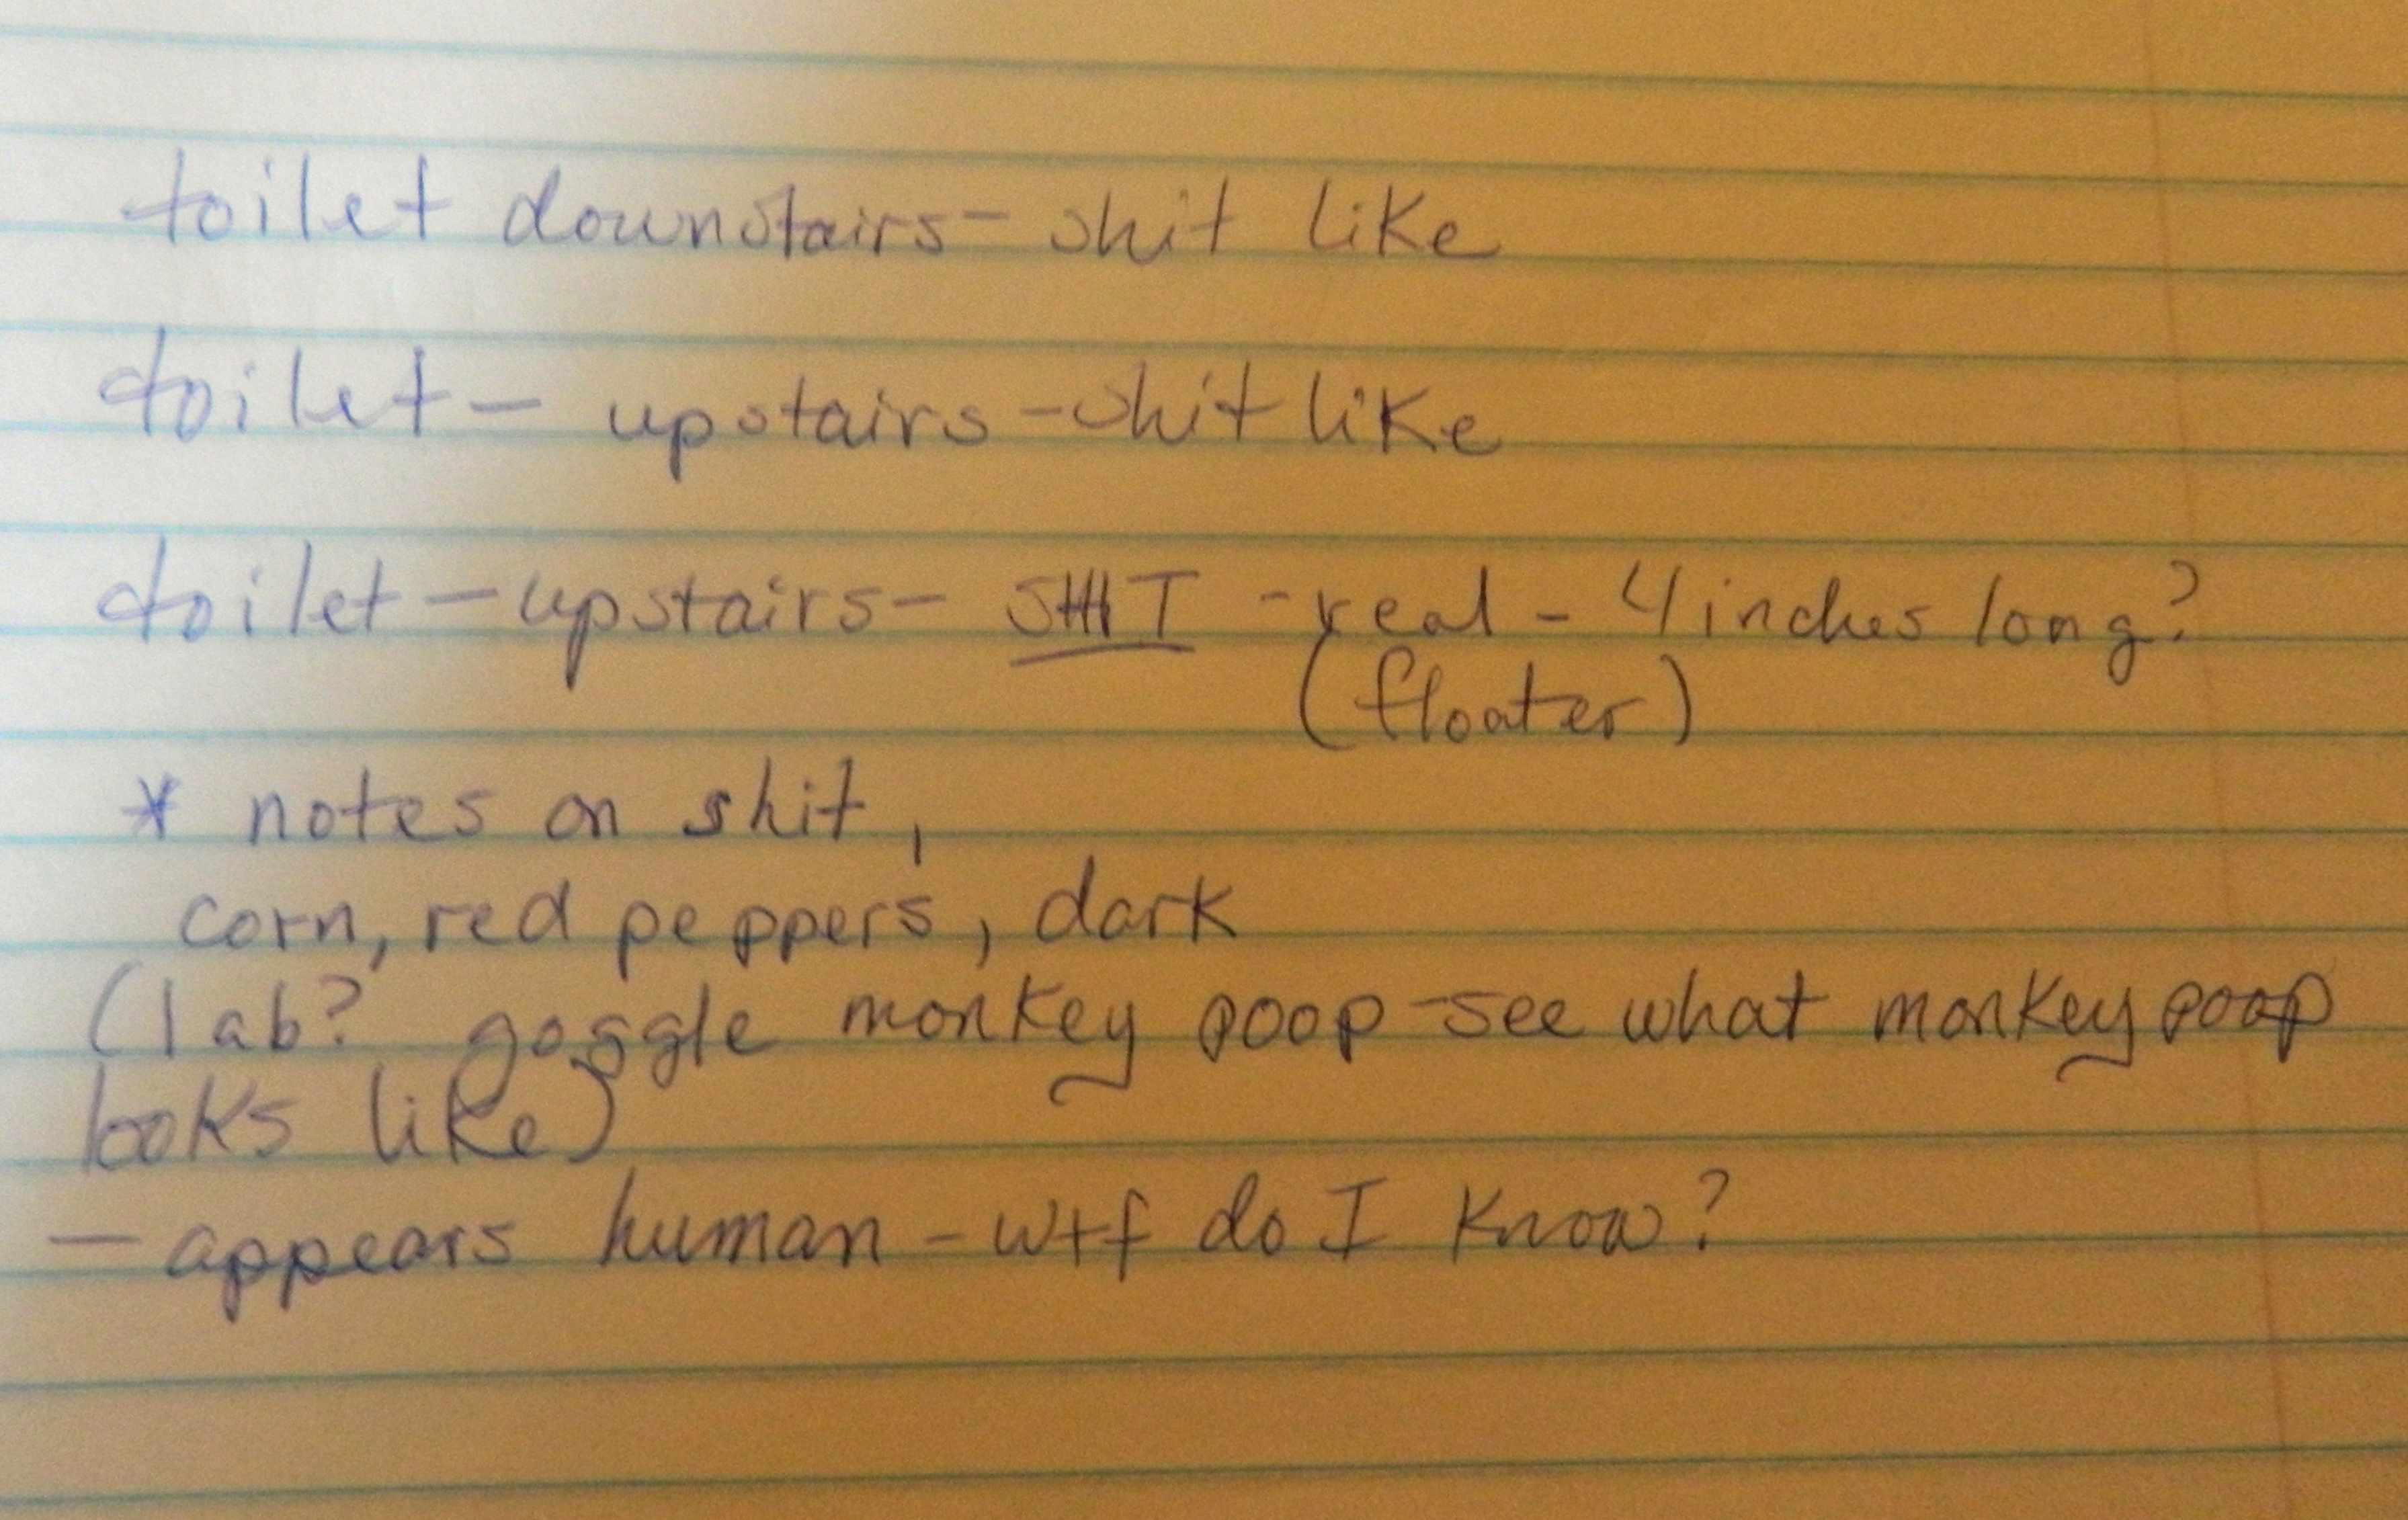 toilet downstairs- shit like
toilet - upstairs - shit like
toilet - upstairs - SHIT - real - 4 inches long?
(floater)
* notes on shit,
corn, red peppers, dark
(lab? goggle monkey poop - see what monkey poop
looks like)
- appears human - wtf do I know?